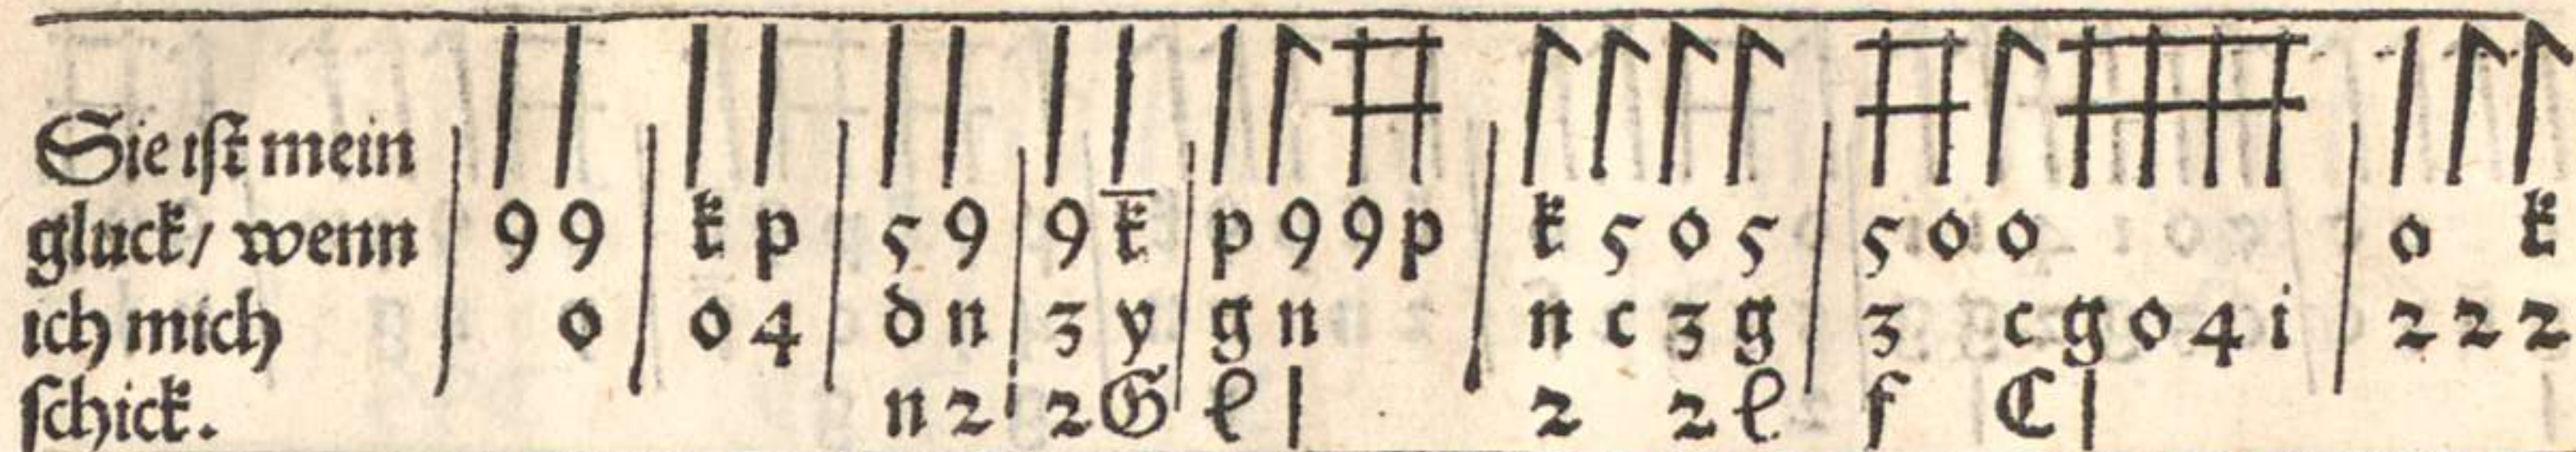 Sie ist mein
gluck/ wenn
ich mich
schick.
9 9 | k p | 5 9 | 9 k̅ | p 9 9 p | k 5 o 5 | 5 o o | o k
o | o 4 | d n | 3 y | g n | n c 3 g | 3 c g o 4 i | 2 2 2
n 2 | 2 G | l | | 2 2 l | f C |